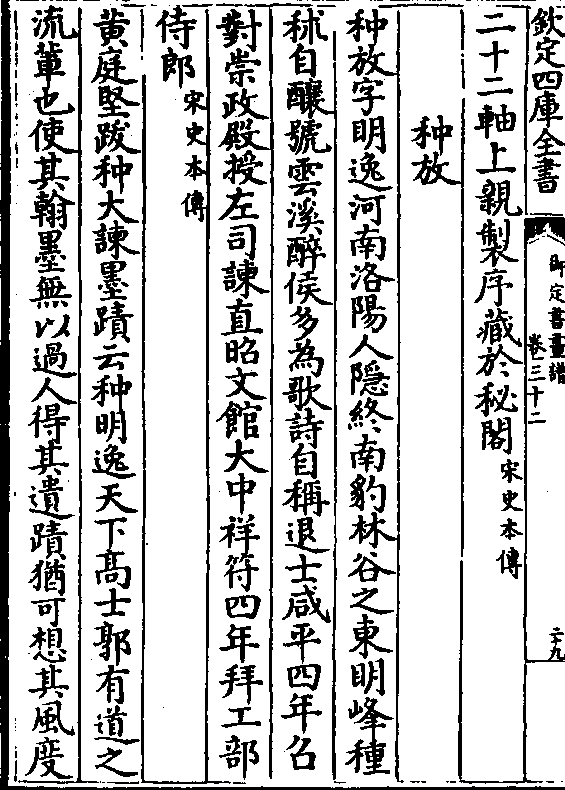 欽定四庫全書
御定書畫譜
卷三十二
二十九
二十二軸上親製序藏於秘閣宋史本傳
种放
种放字明逸河南洛陽人隱終南豹林谷之東明峰種
秫自釀號雲溪醉侯多為歌詩自稱退士咸平四年召
對崇政殿授左司諫直昭文館大中祥符四年拜工部
侍郎宋史本傳
黄庭堅跋种大諫墨蹟云种明逸天下髙士郭有道之
流輩也使其翰墨無以過人得其遺蹟猶可想其風度